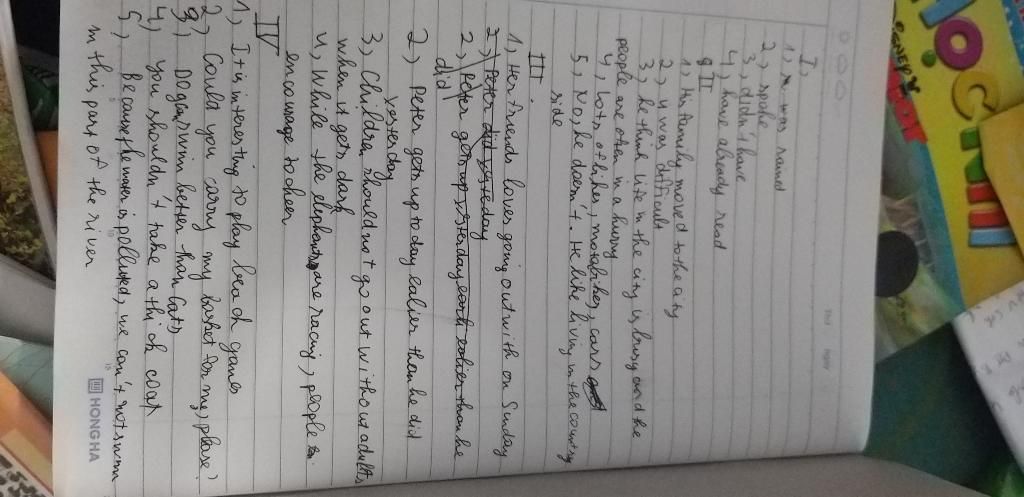 I,
1, was rained
2, spoke
3, didn't have
4, have already read
II
1, His family moved to the city
2, it was difficult
3, he think life in the city is busy and the
people are often in a hurry
4, Lots of bikes, motobikes, cars
5, No, he doesn't. He like living in the country
side
III.
1, Her friends loves going out with on Sunday
2, Peter did yesterday
2, Peter gets up yesterday earlier than he
did
2, Peter gets up today ealier than he did
yesterday
3, Children should not go out without adults
when it gets dark
4, While the elephants are racing, people
encourage to cheer
IV
1, It is interesting to play beach games
2, Could you carry my basket for me, please?
3, Dogs swim better than Cats
4, you shouldn't take a thick coat
5, Because the water is polluted, we can't not swim
in this part of the river
HONG HA
DISNEY